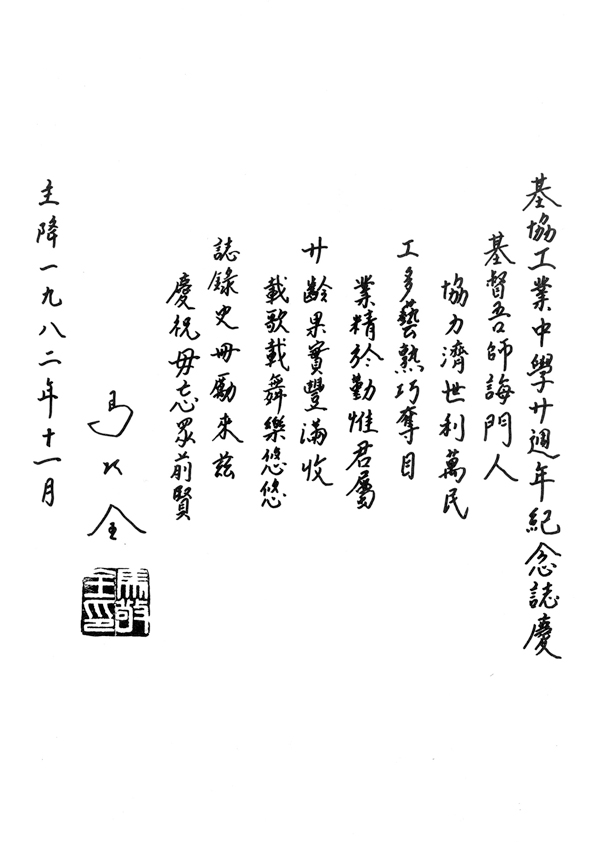 基協工業中學廿週年紀念誌慶
基督吾師誨門人
協力濟世利萬民
工多藝熟巧奪目
業精於勤惟君屬
廿齡果實豐滿收
載歌載舞樂悠悠
誌錄史冊勵來茲
慶祝毋忘眾前賢
馬敬全
馬敬全印
主降一九八二年十一月